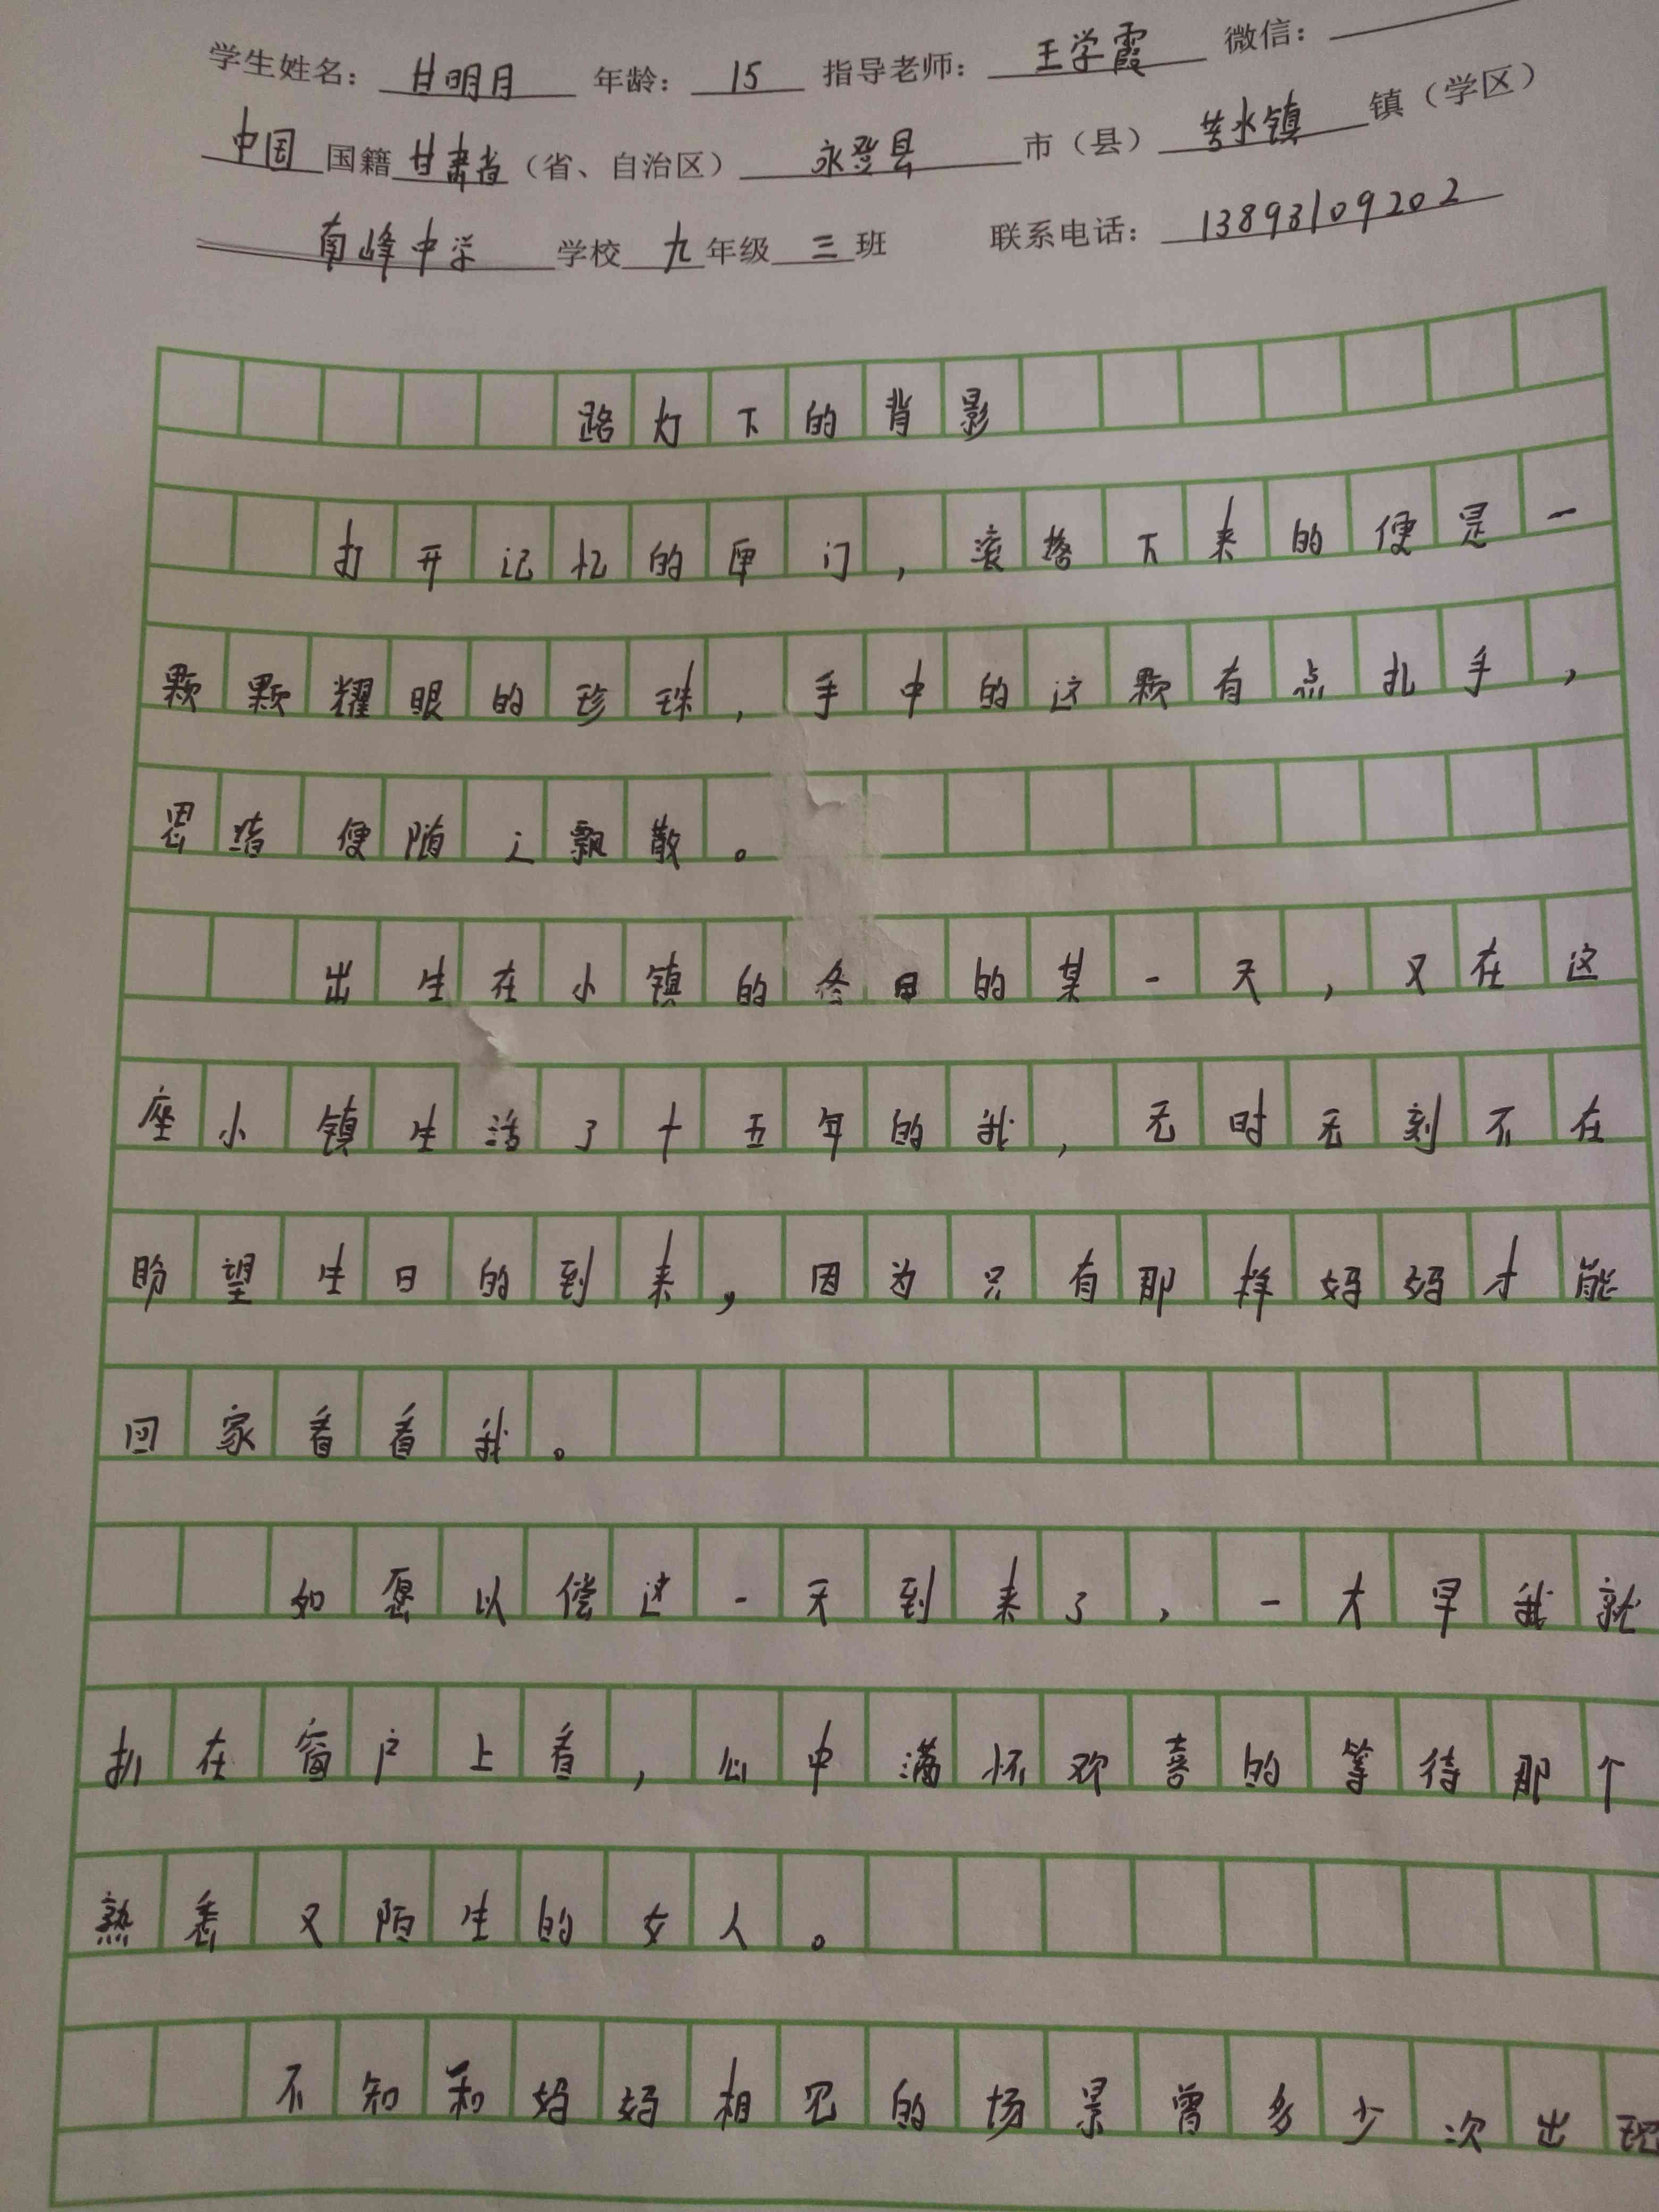 学生姓名：甘明月 年龄：15 指导老师：王学霞 微信：
中国国籍甘肃省（省、自治区）永登县市（县）苦水镇镇（学区）
南峰中学学校九年级三班 联系电话：13893109202
路灯下的背影
打开记忆的闸门，滚落下来的便是一
颗颗耀眼的珍珠，手中的这颗有点扎手，
思绪便随之飘散。
出生在小镇的冬日的某一天，又在这
座小镇生活了十五年的我，无时无刻不在
盼望生日的到来，因为只有那样妈妈才能
回家看看我。
如愿以偿这一天到来了，一大早我就
扒在窗户上看，心中满怀欢喜的等待那个
熟悉又陌生的女人。
不知和妈妈相见的场景曾多少次出现